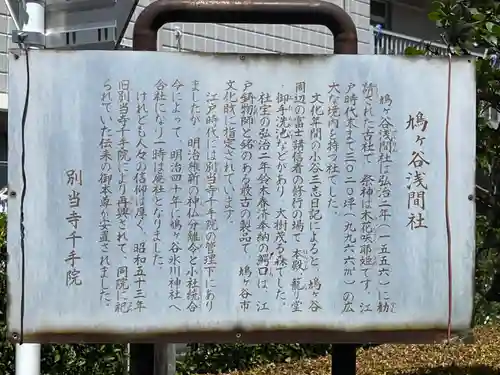 鳩ヶ谷浅間社
鳩ヶ谷浅間社は弘治二年(一五五六)に勧
請された古社で 祭神は木花咲耶姫です。江
戸時代末まで三〇二〇坪(九九六六㎡)の広
大な境内を持つ社でした。
文化年間の小谷三志日記によると、鳩ヶ谷
周辺の富士講信者の修行の場で 本殿 籠り堂
御手洗池などがあり 大樹茂る森でした。
社宝の弘治二年鈴木春済奉納の鰐口は、江
戸鋳物師と銘のある最古の製品で 鳩ヶ谷市
文化財に指定されています。
江戸時代には別当寺千手院の管理下にあり
ましたが 明治維新の神仏分離令と小社統合
令によって、明治四十年に鳩ヶ谷氷川神社へ
合社になり一時は廃社となりました。
けれども人々の信仰は厚く、昭和五十三年
旧別当寺千手院により再興されて、同院に祀
られていた伝来の御本尊が安置されました。
別当寺千手院